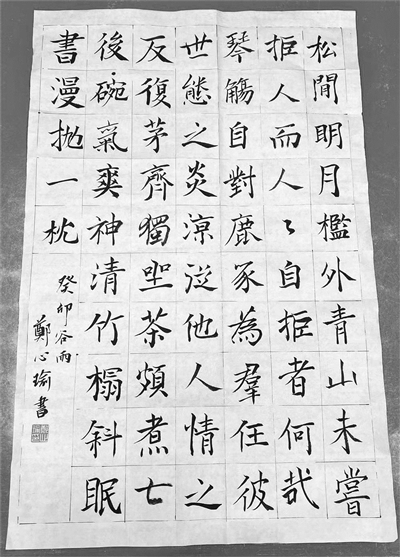 松間明月檻外青山未嘗
拒人而人々自拒者何哉
琴觴自對鹿豕為羣任彼
世態之炎涼從他人情之
反復茅齊獨坐茶頻煮七
後碗氣爽神清竹榻斜眠
書漫拋一枕
癸卯谷雨
鄭心瑜書